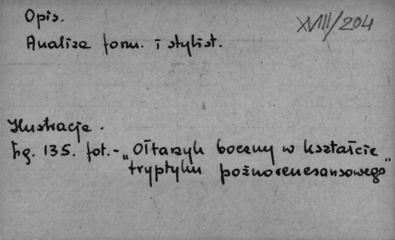 Opis.
XVIII/204
Analiza form. i stylist.
Ilustracje.
Fig. 135. fot. - „Ołtarzyk boczny w kształcie
tryptyku późnorenesansowego"